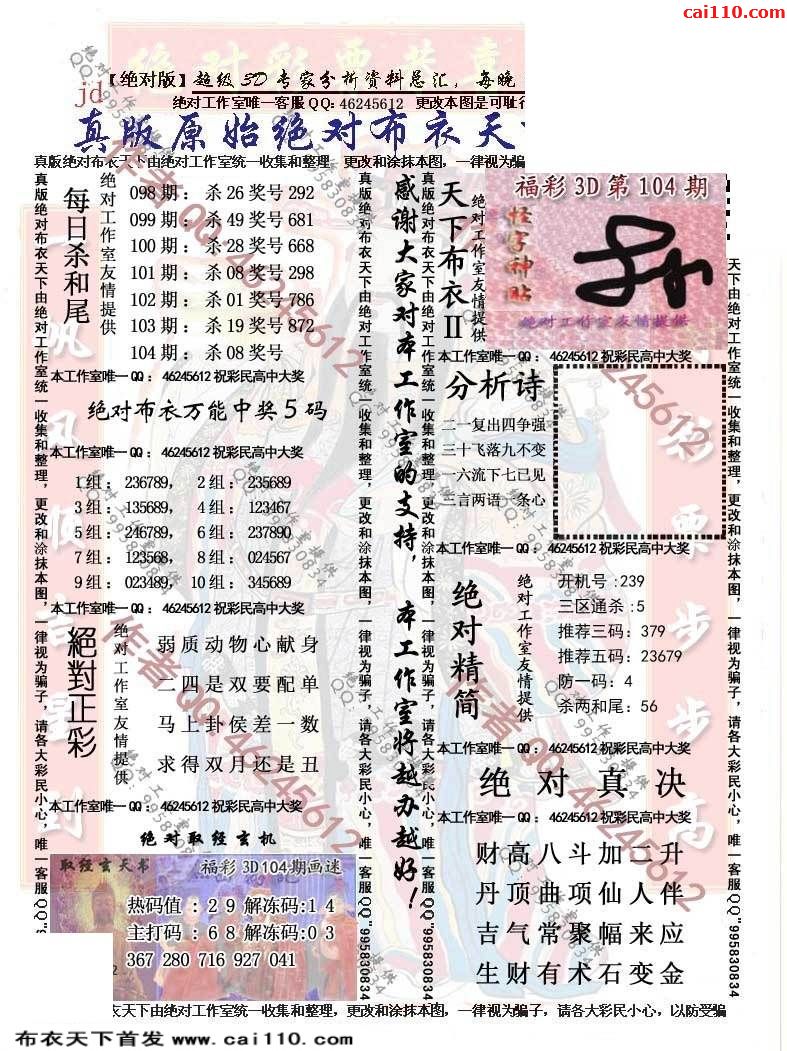 cai110.com
【绝对版】超级3D专家分析资料总汇，每晚
jd
绝对工作室唯一客服QQ:46245612 更改本图是可耻
真版原始绝对布衣天
真版绝对布衣天下由绝对工作室统一收集和整理，更改和涂抹本图，一律视为骗
每日杀和尾
绝对工作室友情提供
098期：杀26奖号292
099期：杀49奖号681
100期：杀28奖号668
101期：杀08奖号298
102期：杀01奖号786
103期：杀19奖号872
104期：杀08奖号
本工作室唯一QQ：46245612祝彩民高中大奖
绝对布衣万能中奖5码
本工作室唯一QQ：46245612祝彩民高中大奖
1组：236789，2组：235689
3组：135689，4组：123467
5组：246789，6组：237890
7组：123568，8组：024567
9组：023489，10组：345689
本工作室唯一QQ：46245612祝彩民高中大奖
絕對正彩
绝对工作室友情提供
弱质动物心献身
二四是双要配单
马上卦侯差一数
求得双月还是丑
本工作室唯一QQ：46245612祝彩民高中大奖
绝对取经玄机
取经玄天书 福彩3D104期画迷
热码值：29解冻码:14
主打码：68解冻码:03
367 280 716 927 041
真版绝对布衣天下由绝对工作室统一收集和整理，更改和涂抹本图，一律视为骗子，请各大彩民小心，唯一客服QQ"
真版绝对布衣天下由绝对工作室统一收集和整理，更改和涂抹本图，一律视为骗子，请各大彩民小心，唯一客服QQ"995830834
感谢大家对本工作室的支持，本工作室将越办越好！
真版绝对布衣天下由绝对工作室统一收集和整理，更改和涂抹本图，一律视为骗子，请各大彩民小心，唯一客服QQ"995830834
天下布衣II
绝对工作室友情提供
福彩3D第104期
怪字神贴
绝对工作室友情提供
本工作室唯一QQ：46245612祝彩民高中大奖
分析诗
二一复出四争强
三十飞落九不变
一六流下七已见
三言两语一条心
本工作室唯一QQ：46245612祝彩民高中大奖
绝对精简
绝对工作室友情提供
开机号:239
三区通杀:5
推荐三码:379
推荐五码:23679
防一码:4
杀两和尾:56
本工作室唯一QQ：46245612祝彩民高中大奖
绝对真决
本工作室唯一QQ：46245612祝彩民高中大奖
财高八斗加二升
丹顶曲项仙人伴
吉气常聚幅来应
生财有术石变金
天下由绝对工作室统一收集和整理，更改和涂抹本图，一律视为骗子，请各大彩民小心，唯一客服QQ"995830834
衣天下由绝对工作室统一收集和整理，更改和涂抹本图，一律视为骗子，请各大彩民小心，以防受骗
布衣天下首发 www.cai110.com
作者QQ:46245612